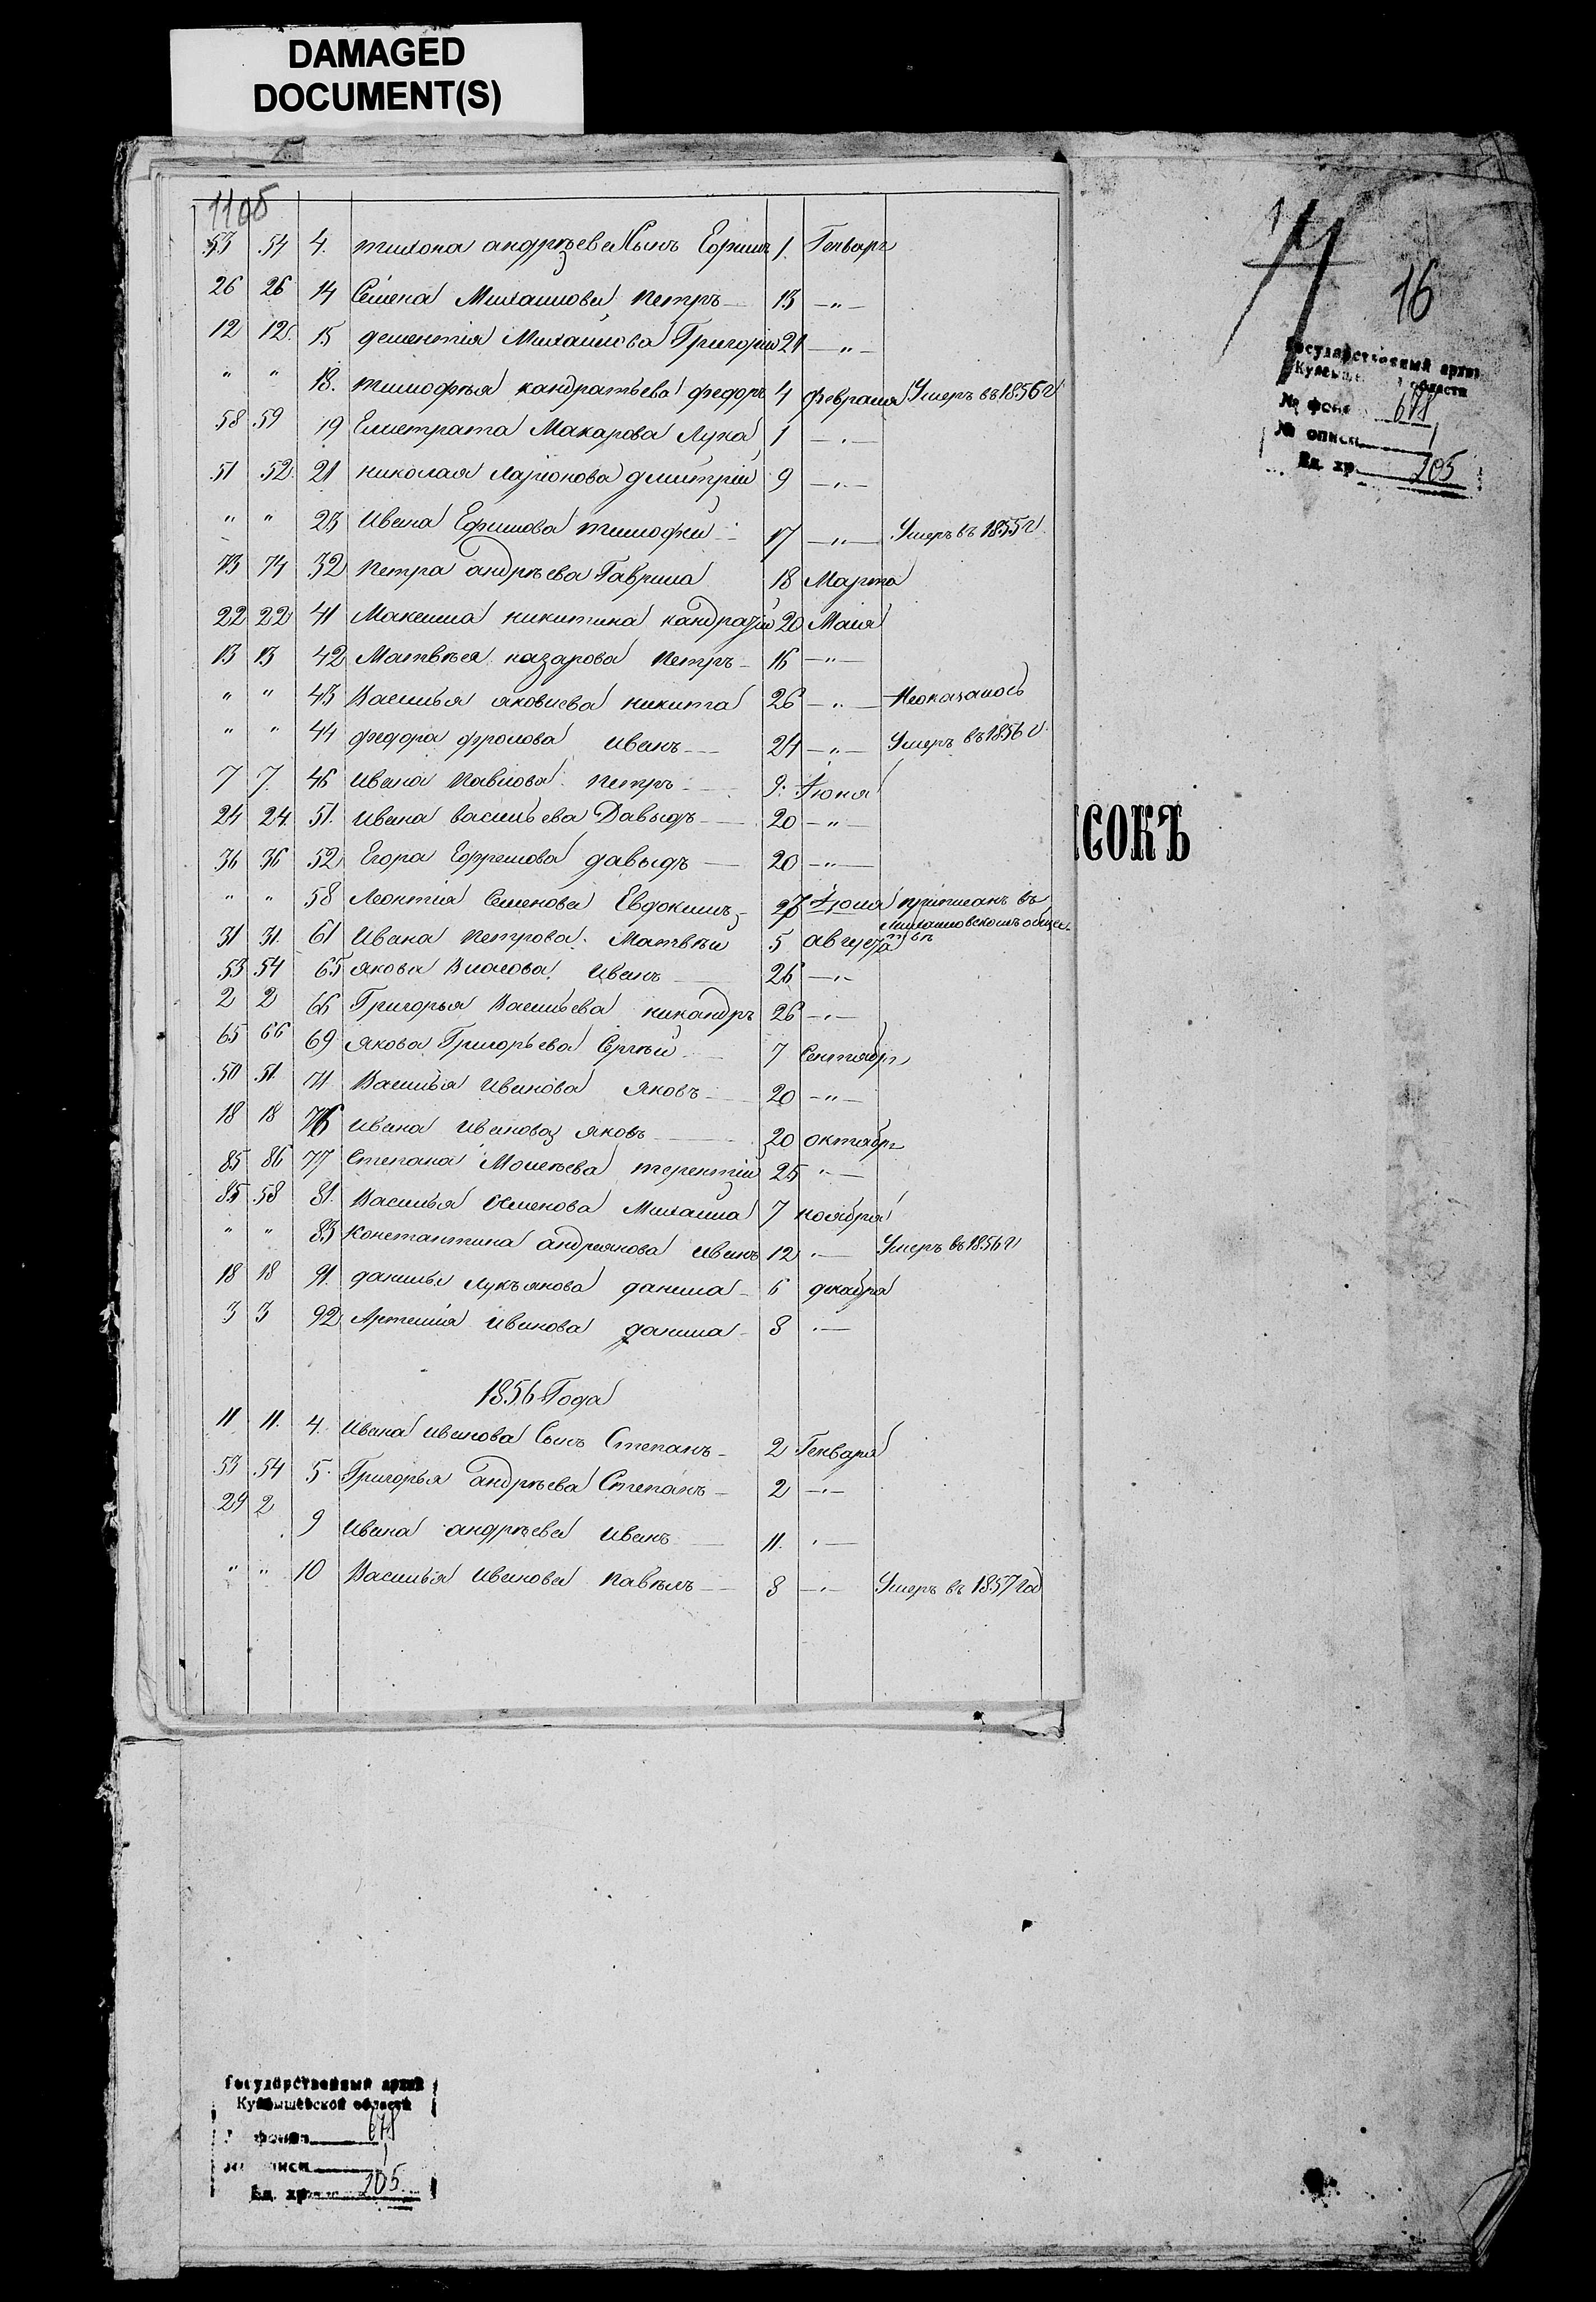 DAMAGED
DOCUMENT(S)
53 54 4. тихона андрѣева Сынъ Ефимъ 1. Генваря
26 26 14 Семена Михайлова Петръ 13 — " —
12 12. 15 дементія Михайлова Григорій 21 — " —
" " 18. тимофѣя кандратьева федоръ 4 февраля Умеръ въ 1856 г
58 59 19 Елистрата Макарова Лука 1 — " —
51 52. 21 николая Ларіонова дмитрій 9 — " —
" " 23 Ивана Ефимова тимофей 17 — " — Умеръ въ 1855 г.
73 74 32 Петра андрѣева Гаврила 18 Марта
22 22 41 Максима никитина кандратій 20 Маія
13 13 42 Матвѣея назарова Петръ 16 — " —
" " 43 Василья яковлева никита 26 — " — Неоказалось
" " 44 федора фролова иванъ 24 — " — Умеръ въ 1856 г.
7 7. 46 ивана Павлова Петръ 9. Іюня
24 24. 51. ивана васильева Давыдъ 20 — " —
36 36 52 Егора Ефремова давыдъ 20 — " —
" " 58 Леонтія Семенова Евдокимъ 27 Іюля приписанъ въ
Михайловскомъ общес.
31 31. 61 Ивана Петрова Матвѣй 5 августа
53 54 65 якова Власова Иванъ 26 — " —
2 2 66 Григорья Васильева никандръ 26 — " —
65 66 69 якова Григорьева Сергѣй 7 Сентября
50 51. 71 Василья Иванова яковъ 20 — " —
18 18 76 ивана Иванова яковъ 20 октября
85 86 77 Степана Моисѣева терентій 25 " —
85 58 81. Василья Семенова Михаила 7 ноября
" " 83 Константина андреянова иванъ 12 " — Умеръ въ 1856 г
18 18 91. данилы Лукъянова данила 6 декабря
3 3 92 Артемія иванова данила 8 " —
1856 Года
11 11. 4. Ивана иванова Сынъ Степанъ 2 Генваря
53 54 5. Григорья андрѣева Степанъ 2 — " —
29 2 9 Ивана андрѣева иванъ 11. " —
" " 10 Василья иванова Павелъ 8 — " — Умеръ въ 1857 год
16
Государственный архив
Куйбышевской области
№ фонда 671
№ описи 1
Ед. хр. 205
СОКЪ
Государственный архив
Куйбышевской области
№ фонда 671
№ описи 1
Ед. хр. 205